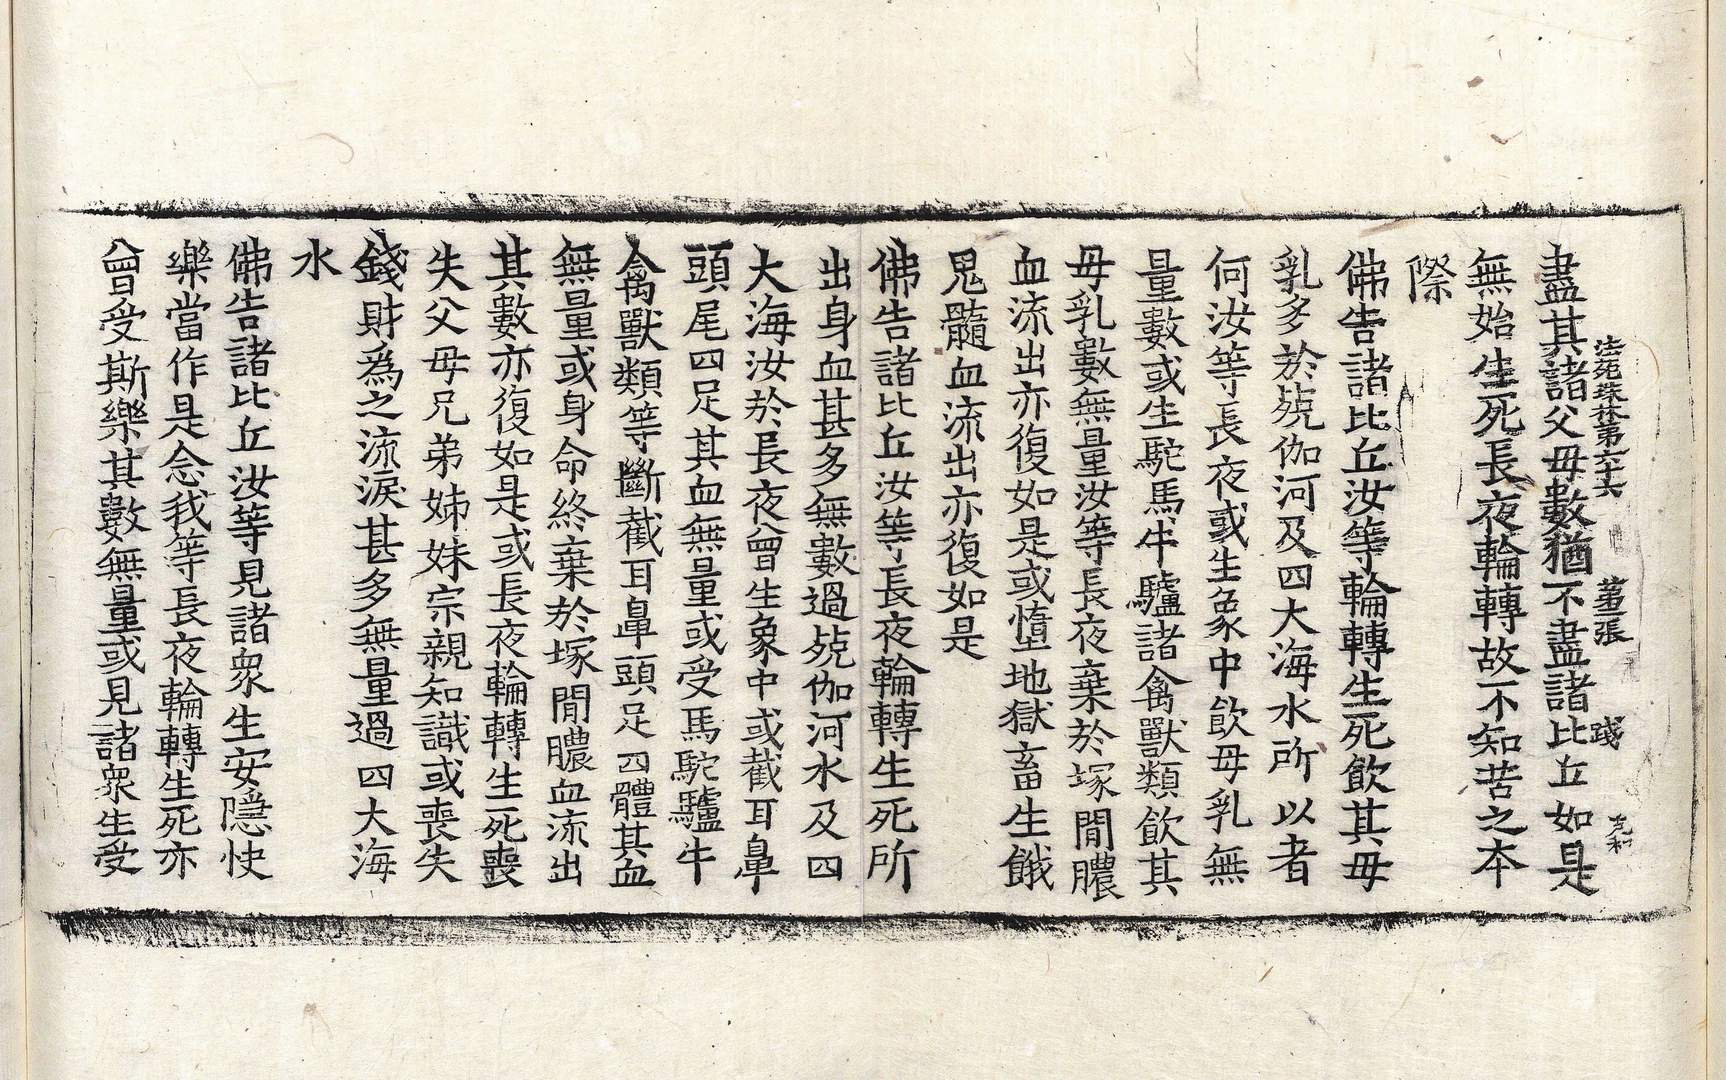 法苑珠林第六十六 張 踐
盡其諸父母數猶不盡諸比丘如是
無始生死長夜輪轉故不知苦之本
際
佛告諸比丘汝等輪轉生死飲其母
乳多於兢伽河及四大海水所以者
何汝等長夜或生象中飲母乳無
量數或生駝馬牛驢諸禽獸類飲其
母乳數無量汝等長夜棄於塚間膿
血流出亦復如是或墮地獄畜生餓
鬼髓血流出亦復如是
佛告諸比丘汝等長夜輪轉生死所
出身血甚多無數過兢伽河水及四
大海汝於長夜曾生象中或截耳鼻
頭尾四足其血無量或受馬駝驢牛
禽獸類等斷截耳鼻頭足四體其血
無量或身命終棄於塚間膿血流出
其數亦復如是或長夜輪轉生死喪
失父母兄弟姊妹宗親知識或喪失
錢財為之流淚甚多無量過四大海
水
佛告諸比丘汝等見諸眾生安隱快
樂當作是念我等長夜輪轉生死亦
曾受斯樂其數無量或見諸眾生受